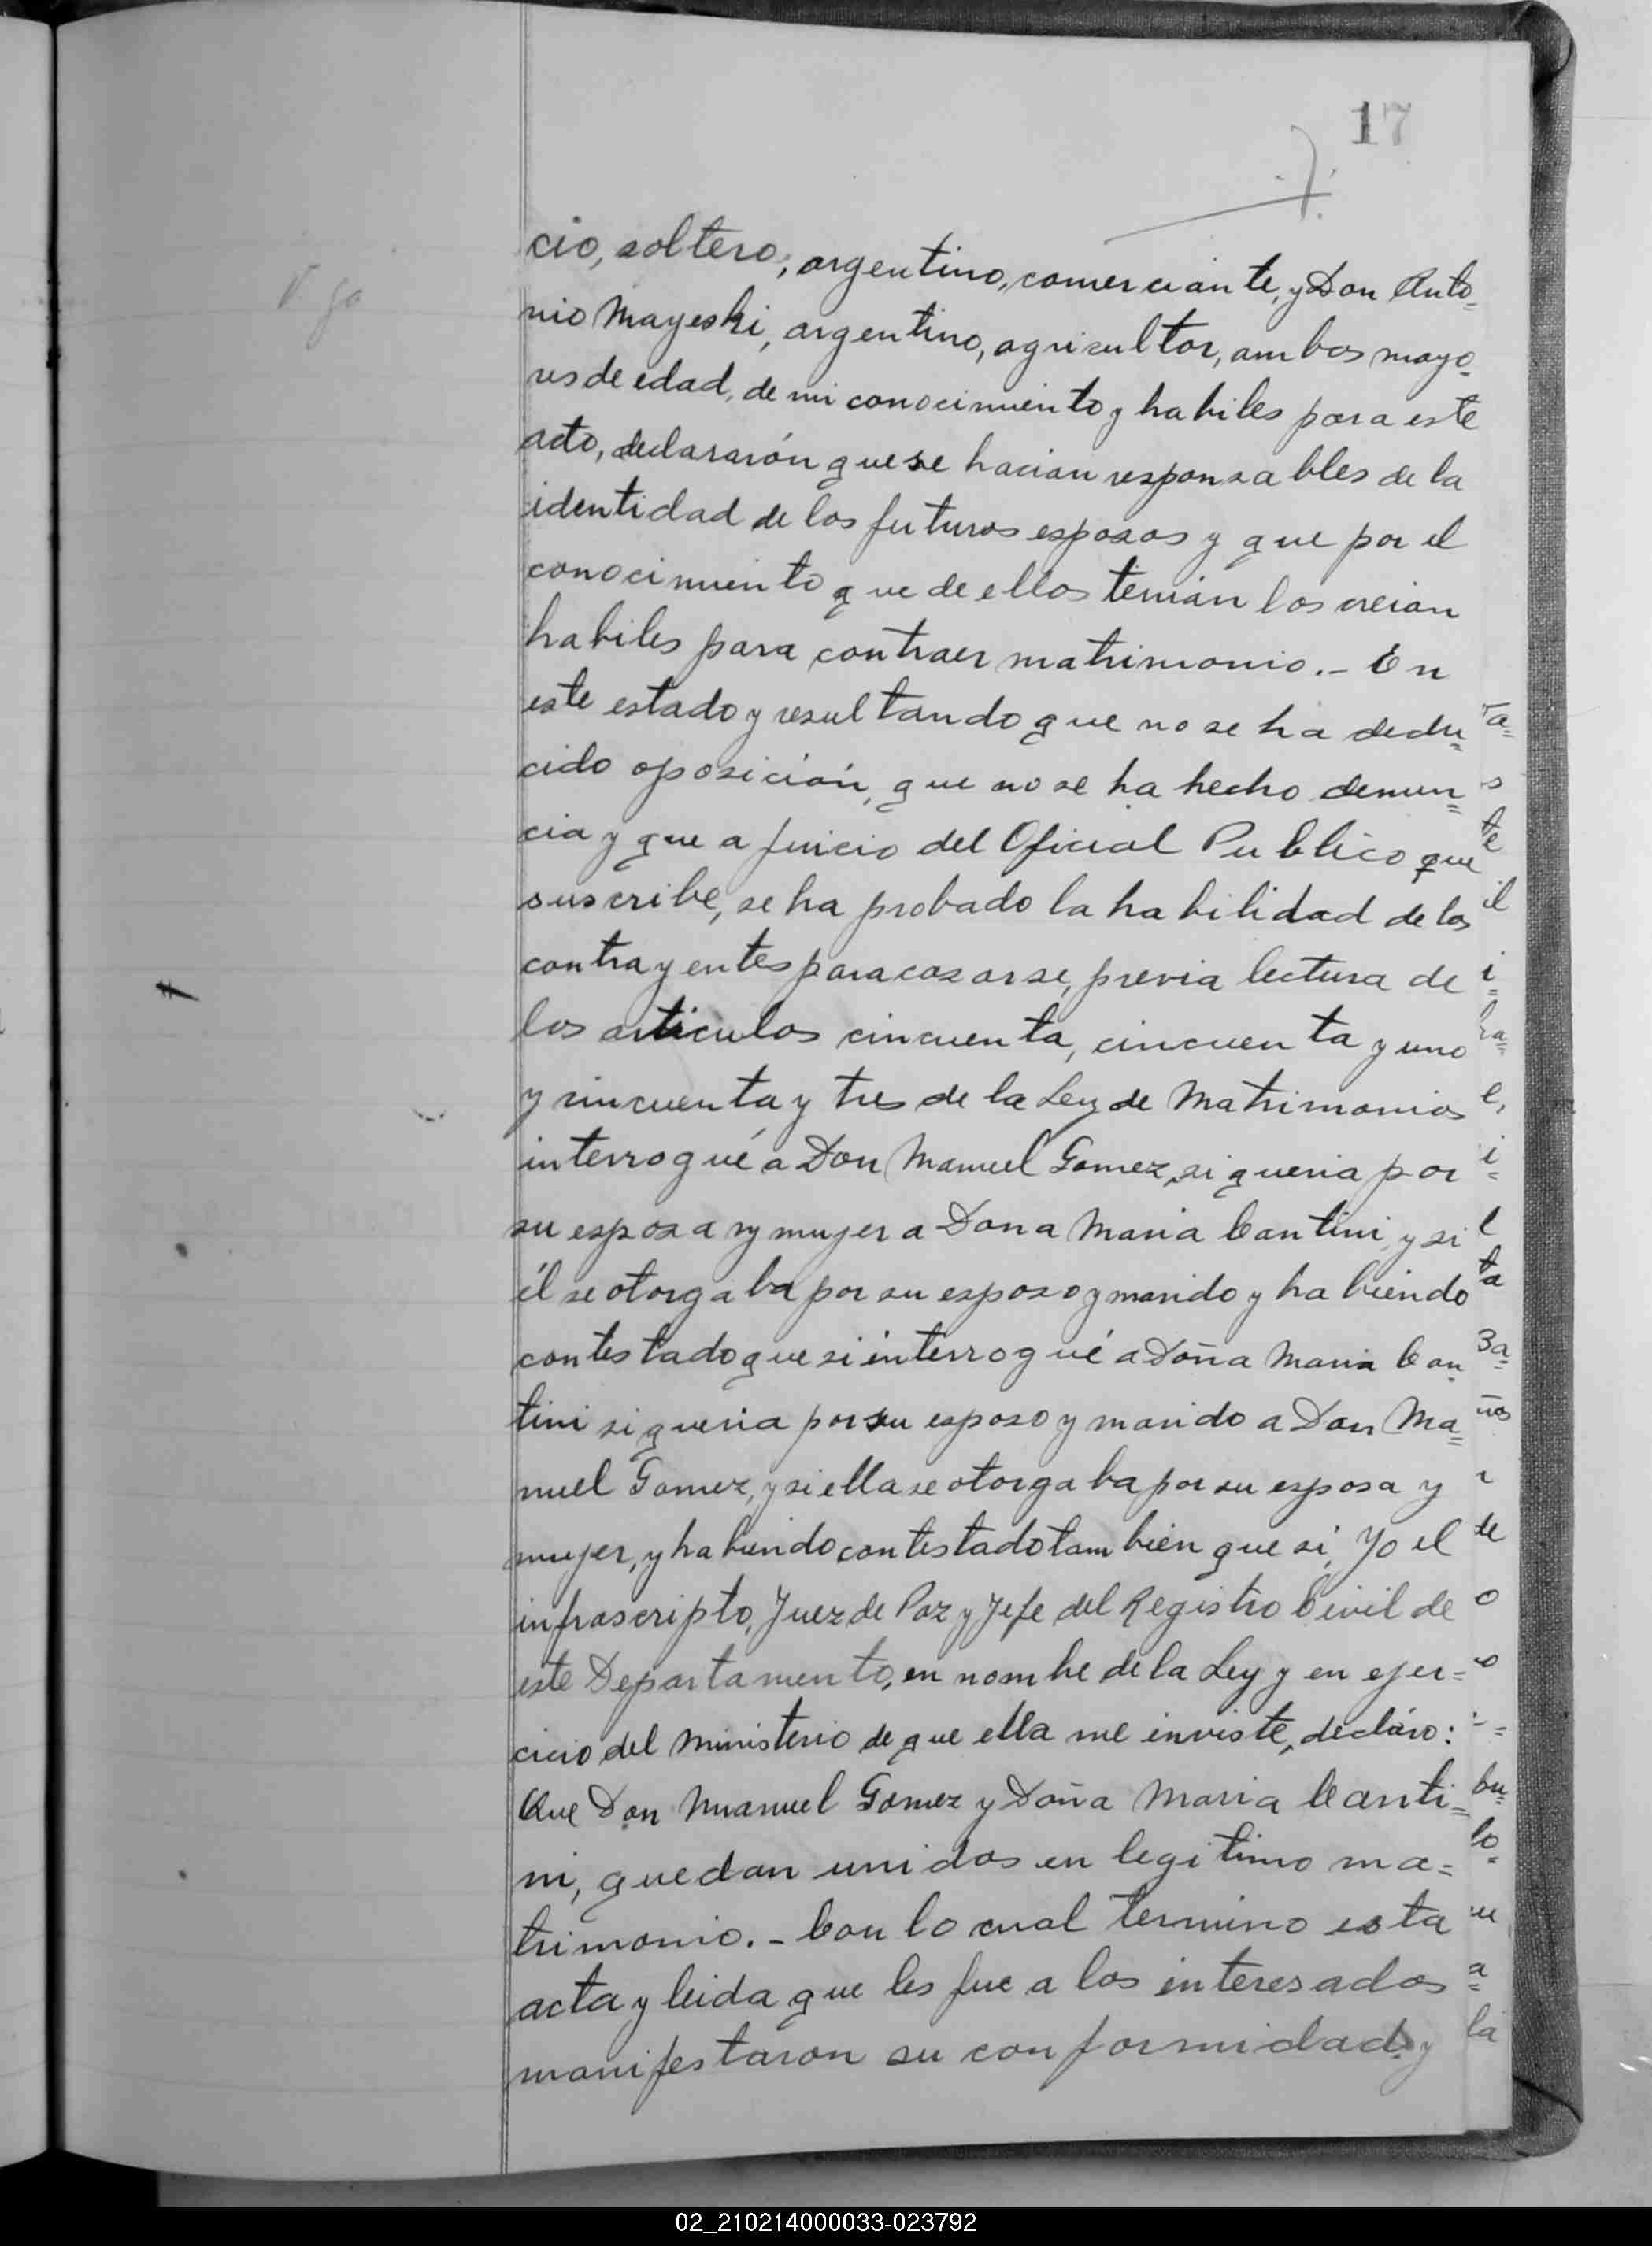 17
cio, soltero, argentino, comerciante, y Don Anto=
nio Mayeski, argentino, agricultor, ambos mayo=
res de edad, de mi conocimiento y habiles para este
acto, declararón que se hacian responsables de la
identidad de los futuros esposos y que por el
conocimiento que de ellos tenian los creian
habiles para contraer matrimonio.- En
este estado y resultando que no se ha dedu=
cido oposición, que no se ha hecho denun=
cia y que a juicio del Oficial Publico que
suscribe, se ha probado la habilidad de los
contrayentes para casarse, previa lectura de
los articulos cincuenta, cincuenta y uno
y cincuenta y tres de la Ley de Matrimonios
interrogué a Don Manuel Gomez, si queria por
su esposa y mujer a Dona Maria Cantini, y si
él se otorgaba por su esposo y marido y habiendo
contestado que si interrogué a Doña Maria Can
tini si queria por su esposo y marido a Don Ma=
nuel Gomez, y si ella se otorgaba por su esposa y
mujer, y habiendo contestado tambien que si, Yo el
infrascripto, Juez de Paz y Jefe del Registro Civil de
este Departamento, en nombe de la Ley y en ejer=
cicio del Ministerio de que ella me inviste, decláro:
Que Don Manuel Gomez y Doña Maria Canti=
ni, quedan unidos en legitimo ma=
trimonio.- Con lo cual termino esta
acta y leida que les fue a los interesados
manifestaron su conformidad y
02_210214000033-023792